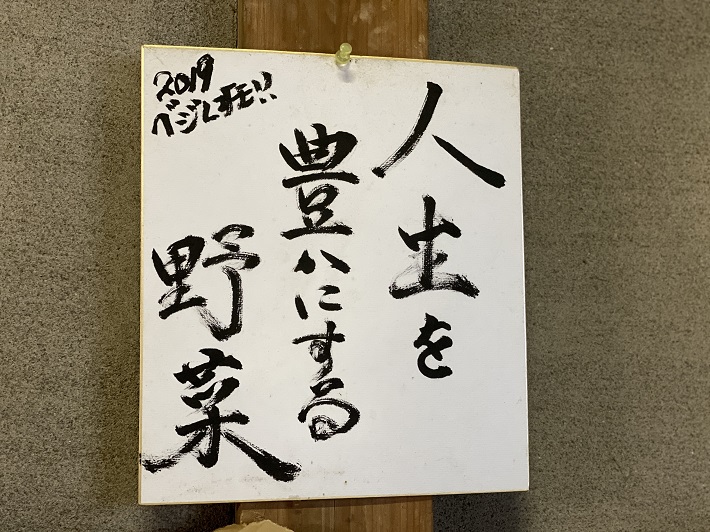 人生を
豊かにする
野菜
2019
ベジレオモ!!